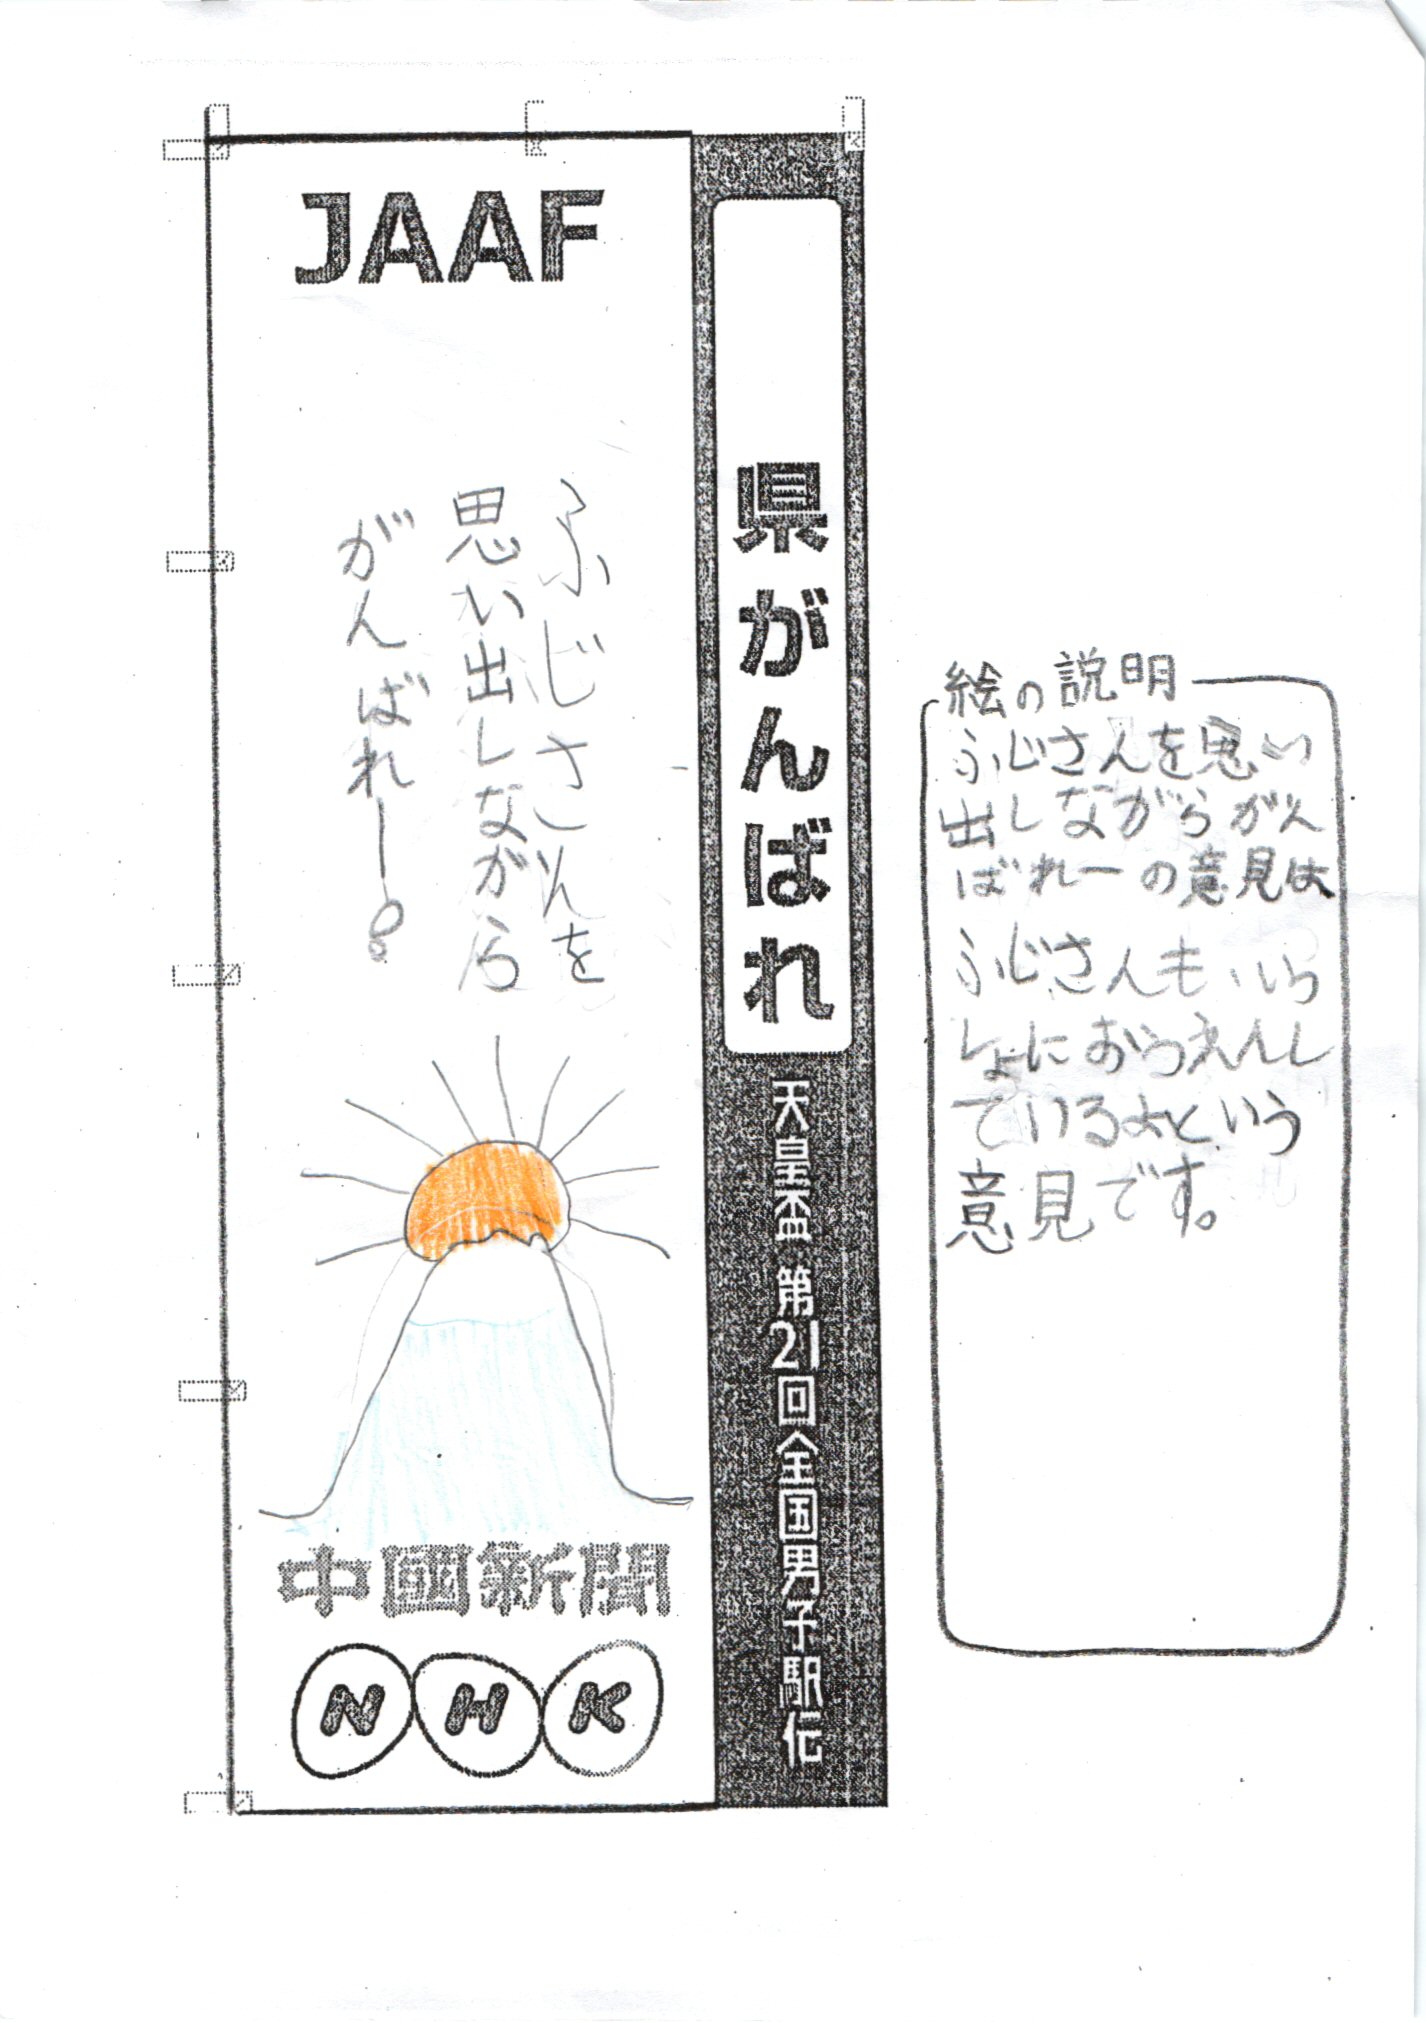 JAAF
県がんばれ
天皇盃 第21回全国男子駅伝
ふじさんを
思い出しながら
がんばれー!
中國新聞
NHK
絵の説明
ふじさんを思い
出しながらがん
ばれーの意見は
ふじさんもいっ
しょにおうえんし
ているよという
意見です。